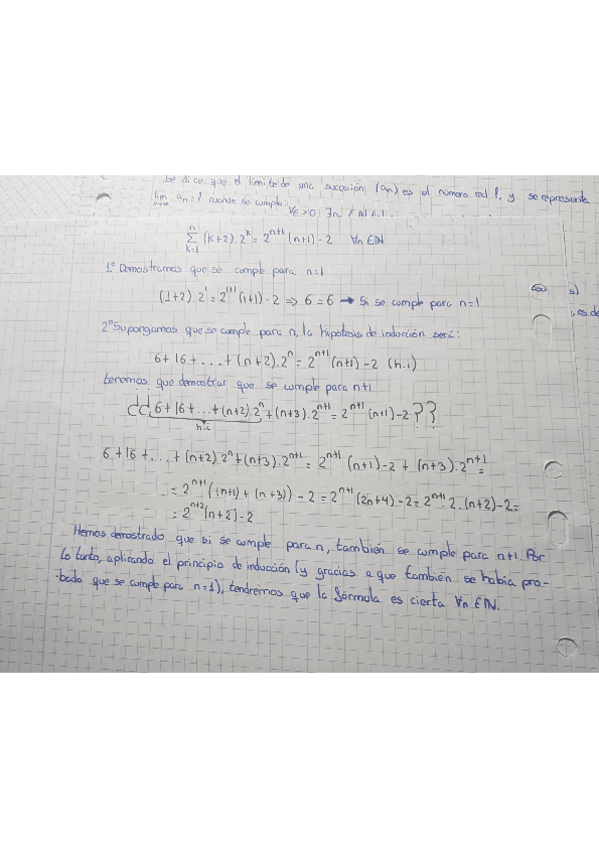 Se dice que el límite de una sucesión (an) es el número real l, y se representa
lim an = l cuando se cumpla: ∀ε>0 ∃n
n
Σ (k+2)·2^k = 2^(n+1) (n+1) - 2 ∀n ∈ ℕ
k=1
1º Demostramos que se cumple para n=1
(1+2)·2^1 = 2^(1+1) (1+1) - 2 ⇒ 6 = 6 → Si se cumple para n=1
2º Supongamos que se cumple para n, la hipótesis de inducción será:
6 + 16 + ... + (n+2)·2^n = 2^(n+1) (n+1) - 2 (h.i)
tenemos que demostrar que se cumple para n+1
¿¿ 6 + 16 + ... + (n+2)·2^n + (n+3)·2^(n+1) = 2^(n+1) (n+1) - 2 ??
h.i
6 + 16 + ... + (n+2)·2^n + (n+3)·2^(n+1) = 2^(n+1) (n+1) - 2 + (n+3)·2^(n+1) =
= 2^(n+1) ((n+1) + (n+3)) - 2 = 2^(n+1) (2n+4) - 2 = 2^(n+1)·2·(n+2) - 2 =
= 2^(n+2) (n+2) - 2
Hemos demostrado que si se cumple para n, también se cumple para n+1. Por
lo tanto, aplicando el principio de inducción (y gracias a que también se había pro-
-bado que se cumple para n=1), tendremos que la fórmula es cierta ∀n ∈ ℕ.